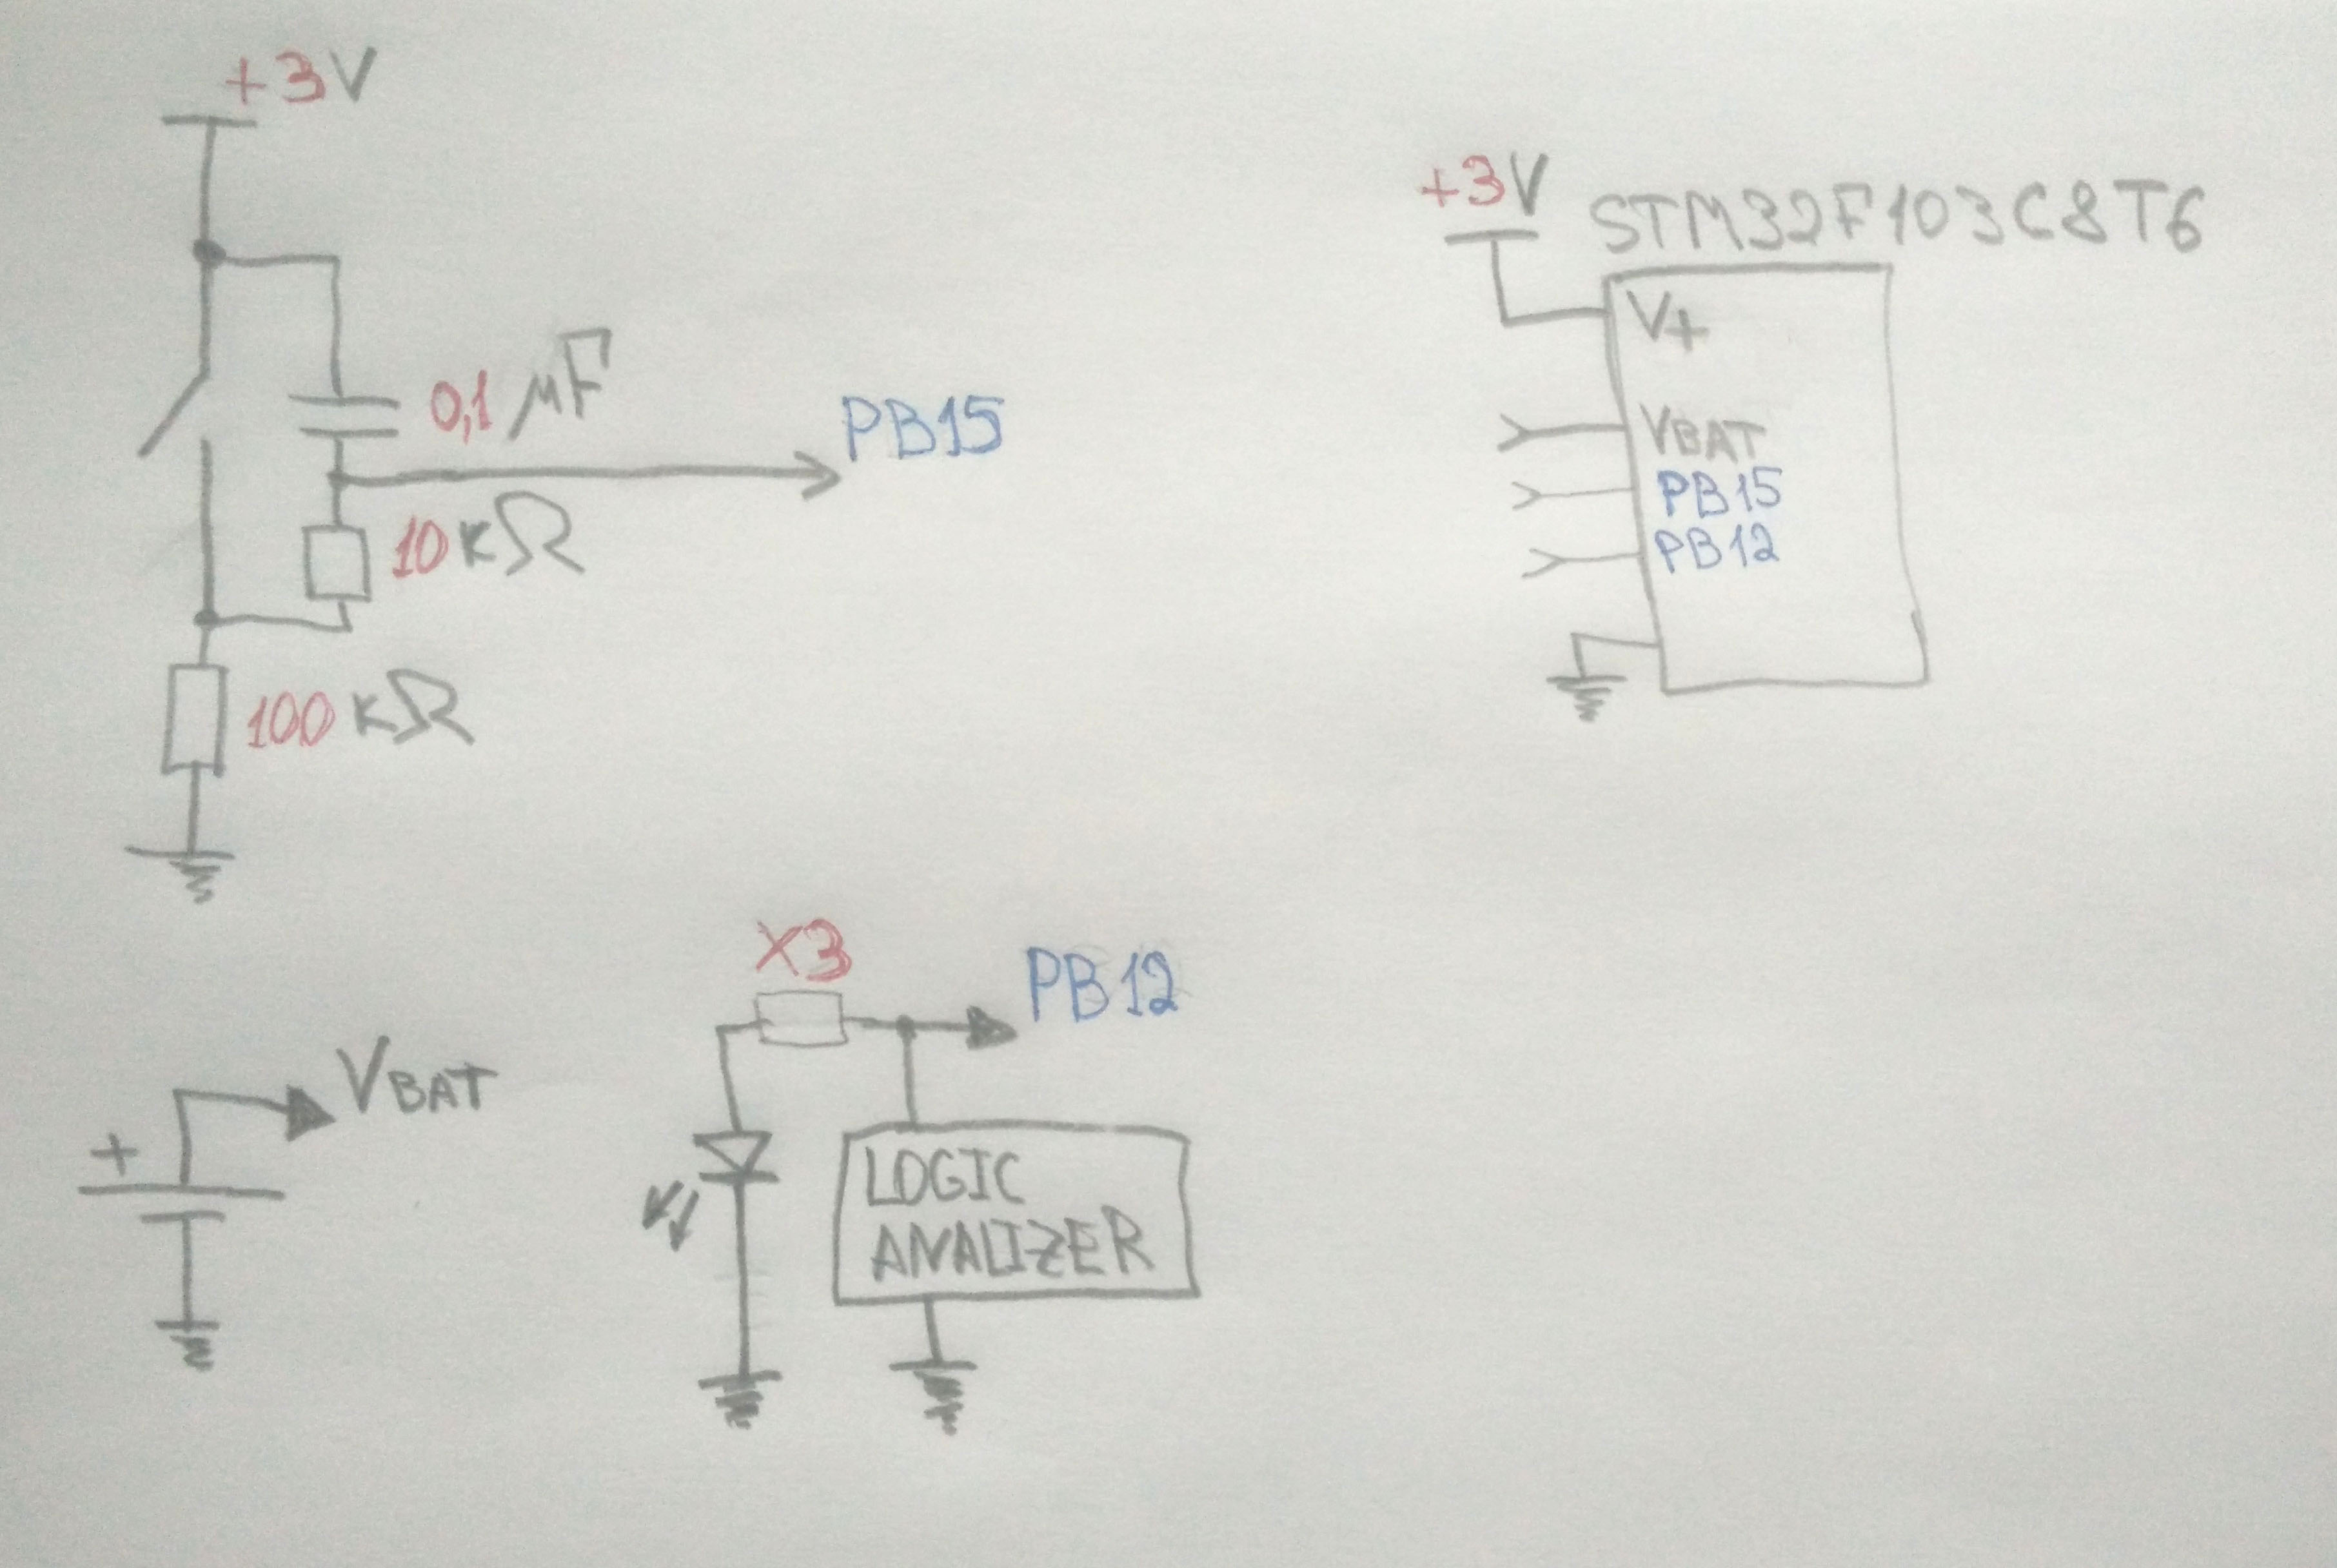 +3V
0,1 μF
PB15
10 кΩ
100 кΩ
+3V
STM32F103C8T6
V+
VBAT
PB15
PB12
+
VBAT
X3
PB12
LOGIC
ANALIZER